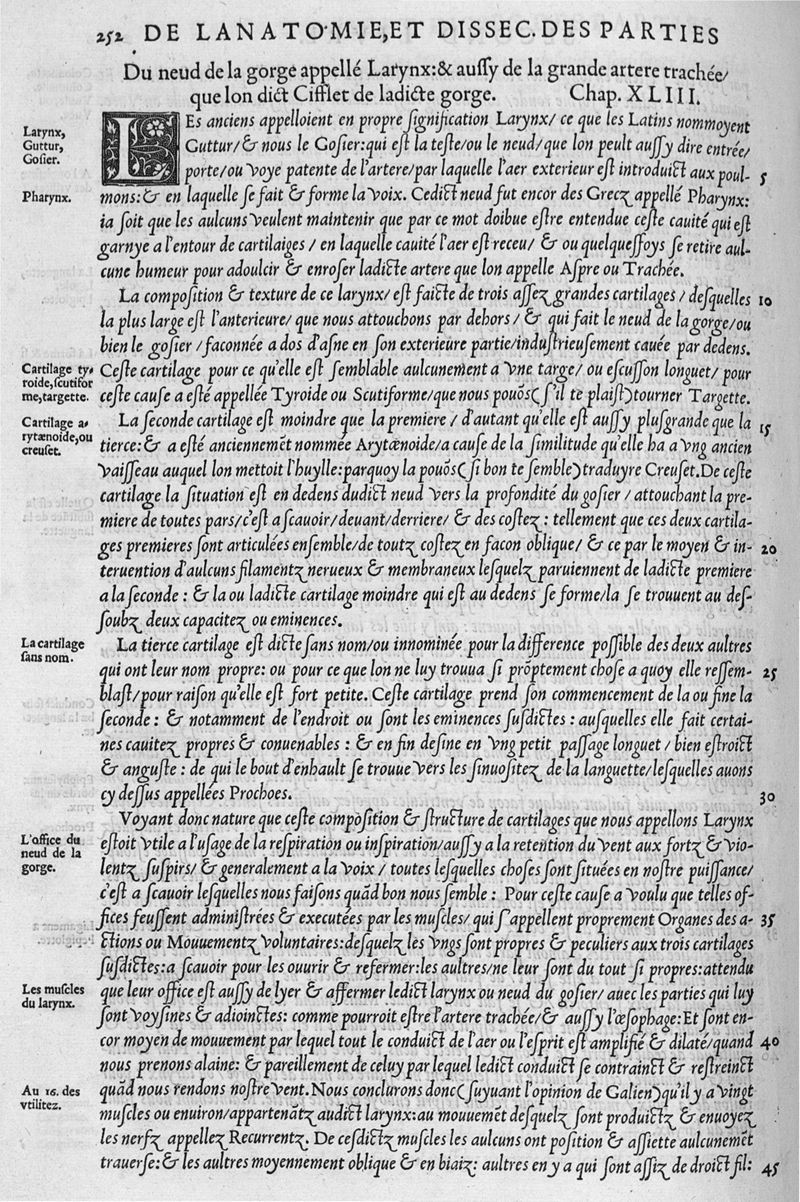 252 DE LANATOMIE, ET DISSEC. DES PARTIES
Du neud de la gorge appellé Larynx: & aussy de la grande artere trachée/
que lon dict Cifflet de ladicte gorge. Chap. XLIII.
Larynx,
Guttur,
Gosier.
LEs anciens appelloient en propre signification Larynx/ ce que les Latins nommoyent
Guttur/ & nous le Gosier: qui est la teste/ou le neud/que lon peult aussy dire entrée/
porte/ou voye patente de l'artere/par laquelle l'aer exterieur est introduict aux poul- 5
Pharynx.
mons: & en laquelle se fait & forme la voix. Cedict neud fut encor des Grecz appellé Pharynx:
ia soit que les aulcuns veulent maintenir que par ce mot doibue estre entendue ceste cauité qui est
garnye a l'entour de cartilaiges / en laquelle cauité l'aer est receu/ & ou quelquessoys se retire aul-
cune humeur pour adoulcir & enroser ladicte artere que lon appelle Aspre ou Trachée.
La composition & texture de ce larynx/ est faicte de trois assez grandes cartilages / desquelles 10
la plus large est l'anterieure/ que nous attouchons par dehors / & qui fait le neud de la gorge/ou
bien le gosier / faconnée a dos d'asne en son exterieure partie/industrieusement cauée par dedens.
Cartilage ty-
roide, scutifor
me, targette.
Ceste cartilage pour ce qu'elle est semblable aulcunement a vne targe/ ou escusson longuet/ pour
ceste cause a esté appellée Tyroide ou Scutiforme/que nous pouõs( s'il te plaist)tourner Targette.
Cartilage a-
rytænoide, ou
creuset.
La seconde cartilage est moindre que la premiere / d'autant qu'elle est aussy plusgrande que la 15
tierce: & a esté anciennemẽt nommée Arytænoide/a cause de la similitude qu'elle ha a vng ancien
vaisseau auquel lon mettoit l'huylle: parquoy la pouõs( si bon te semble)traduyre Creuset. De ceste
cartilage la situation est en dedens dudict neud vers la profondité du gosier / attouchant la pre-
miere de toutes pars/c'est a scauoir/deuant/derriere/ & des costez: tellement que ces deux cartila-
ges premieres sont articulées ensemble/de toutz costez en facon oblique/ & ce par le moyen & in- 20
teruention d'aulcuns filamentz nerueux & membraneux lesquelz paruiennent de ladicte premiere
a la seconde: & la ou ladicte cartilage moindre qui est au dedens se forme/la se trouuent au des-
soubz deux capacitez ou eminences.
La cartilage
sans nom.
La tierce cartilage est dicte sans nom/ou innominée pour la difference possible des deux aultres
qui ont leur nom propre: ou pour ce que lon ne luy trouua si prõptement chose a quoy elle ressem- 25
blast/pour raison qu'elle est fort petite. Ceste cartilage prend son commencement de la ou fine la
seconde: & notamment de l'endroit ou sont les eminences susdictes: ausquelles elle fait certai-
nes cauitez propres & conuenables: & en fin desine en vng petit passage longuet / bien estroict
& anguste: de qui le bout d'enhault se trouue vers les sinuositez de la languette/lesquelles auons
cy dessus appellées Prochoes. 30
Voyant donc nature que ceste compositiõn & structure de cartilages que nous appellons Larynx
L'office du
neud de la
gorge.
estoit vtile a l'usage de la respiration ou inspiration/aussy a la retention du vent aux fortz & vio-
lentz suspirs/ & generalement a la voix / toutes lesquelles choses sont situées en nostre puissance/
c'est a scauoir lesquelles nous faisons quãd bon nous semble: Pour ceste cause a voulu que telles of-
fices feussent administrées & executées par les muscles/ qui s'appellent proprement Organes des a- 35
ctions ou Mouuementz voluntaires: desquelz les vngs sont propres & peculiers aux trois cartilages
susdictes: a scauoir pour les ouurir & refermer: les aultres/ne leur sont du tout si propres: attendu
Les muscles
du larynx.
que leur office est aussy de lyer & affermer ledict larynx ou neud du gosier/ auec les parties qui luy
sont voysines & adioinctes: comme pourroit estre l'artere trachée/ & aussy l'œsophage: Et sont en-
cor moyen de mouuement par lequel tout le conduict de l'aer ou l'esprit est amplifié & dilaté/quand 40
nous prenons alaine: & pareillement de celuy par lequel ledict conduict se contrainct & restreinct
Au 16. des
vtilitez.
quãd nous rendons nostre vent. Nous conclurons donc( suyuant l'opinion de Galien)qu'il y a vingt
muscles ou enuiron/appartenãtz audict larynx: au mouuemẽt desquelz sont produictz & enuoyez
les nerfz appellez Recurrentz. De cesdictz muscles les aulcuns ont position & assiette aulcunemẽt
trauerse: & les aultres moyennement oblique & en biaiz: aultres en y a qui sont assiz de droict fil: 45